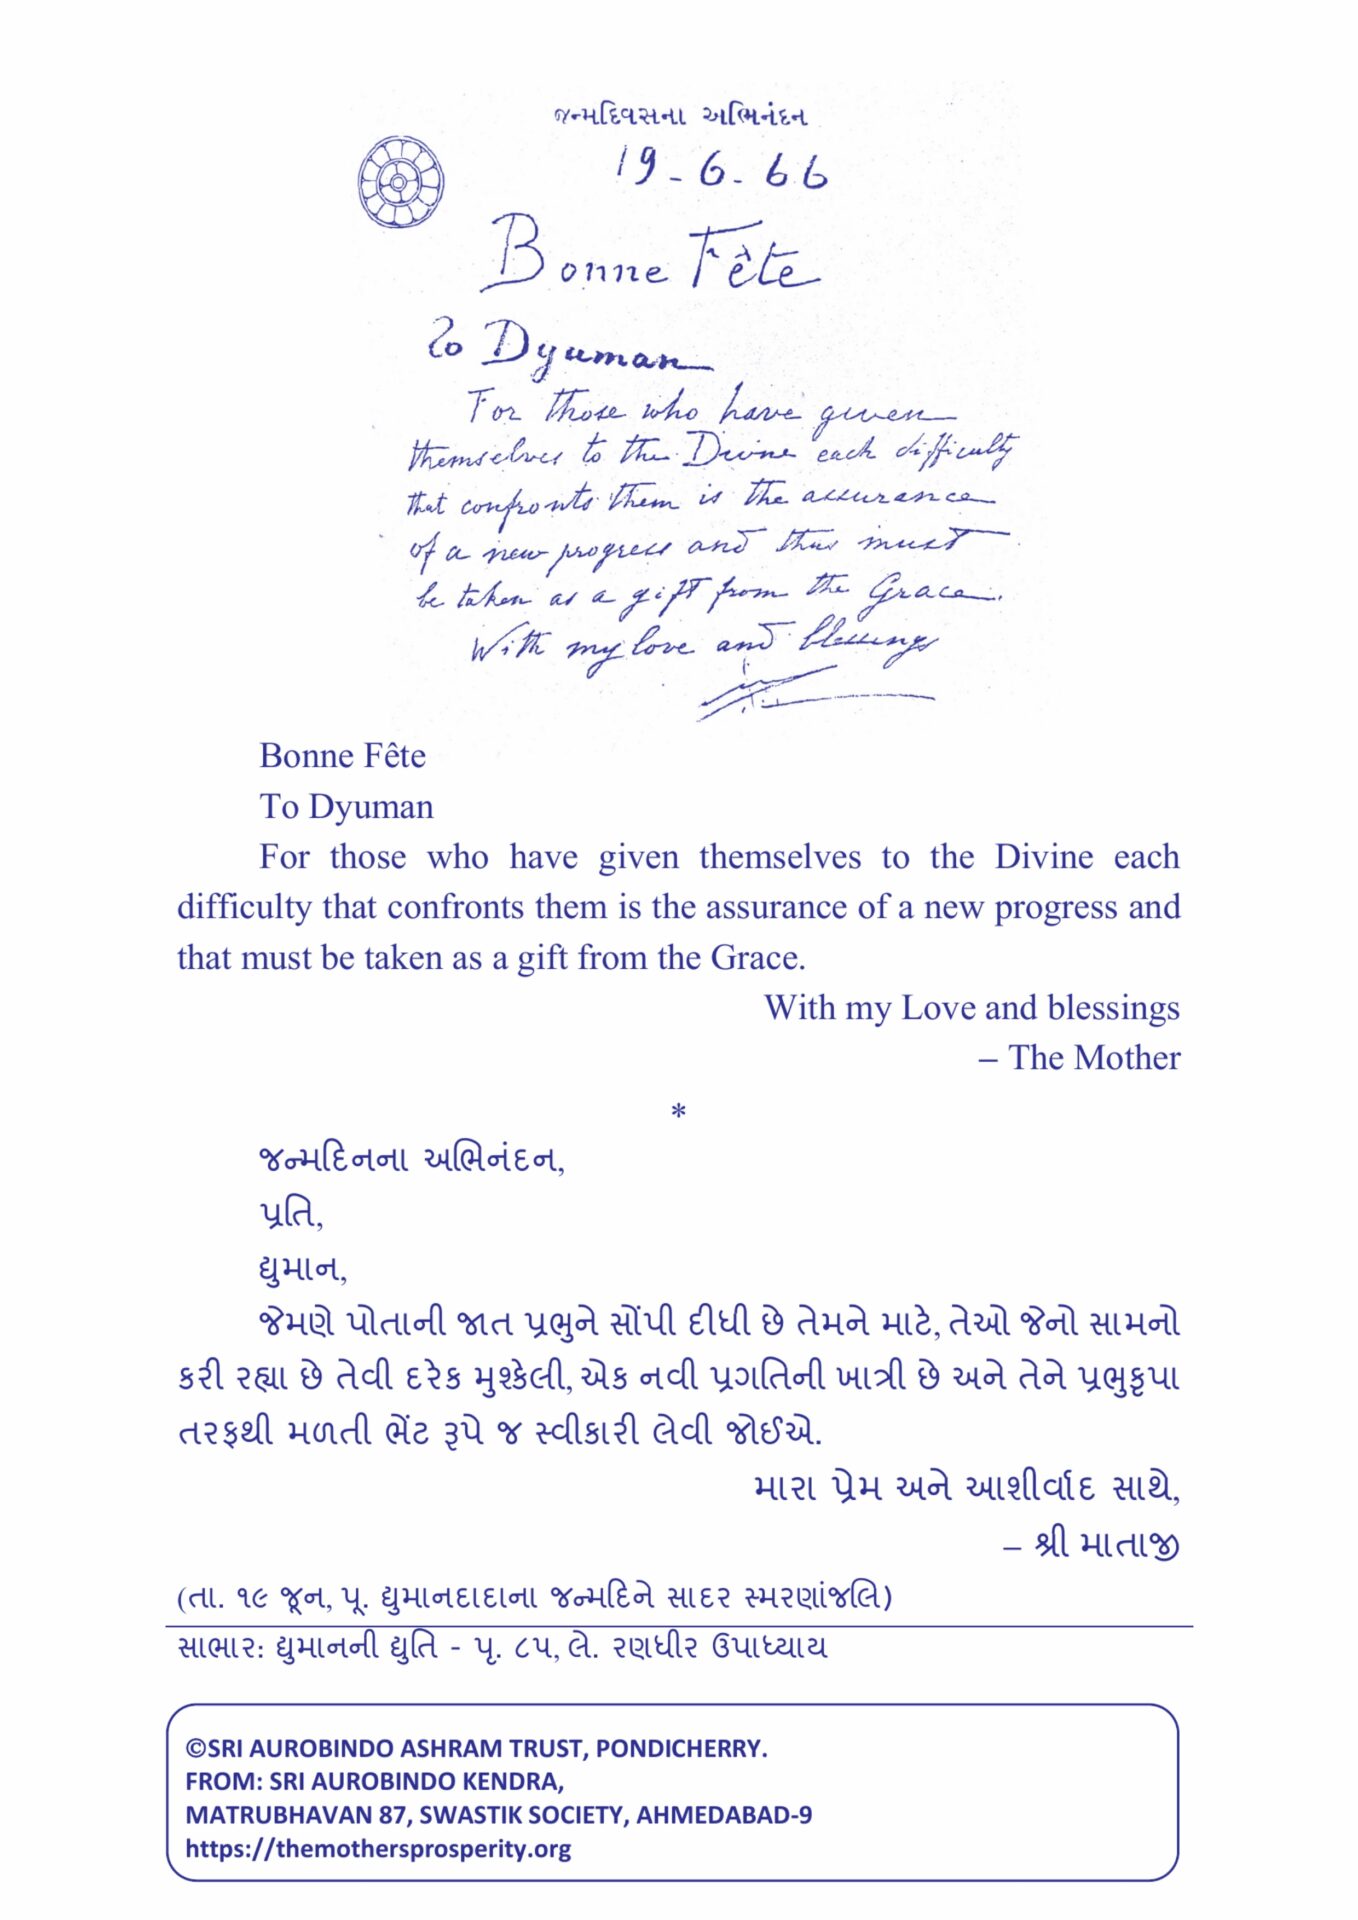 જન્મદિવસના અભિનંદન
19-6-66
Bonne Fête
To Dyuman
For those who have given
themselves to the Divine each difficulty
that confronts them is the assurance
of a new progress and thus must
be taken as a gift from the Grace.
With my love and blessings
Bonne Fête
To Dyuman
For those who have given themselves to the Divine each
difficulty that confronts them is the assurance of a new progress and
that must be taken as a gift from the Grace.
With my Love and blessings
– The Mother
*
જન્મદિનના અભિનંદન,
પ્રતિ,
દ્યુમાન,
જેમણે પોતાની જાત પ્રભુને સોંપી દીધી છે તેમને માટે, તેઓ જેનો સામનો
કરી રહ્યા છે તેવી દરેક મુશ્કેલી, એક નવી પ્રગતિની ખાત્રી છે અને તેને પ્રભુકૃપા
તરફથી મળતી ભેંટ રૂપે જ સ્વીકારી લેવી જોઈએ.
મારા પ્રેમ અને આશીર્વાદ સાથે,
– શ્રી માતાજી
(તા. ૧૯ જૂન, પૂ. દ્યુમાનદાદાના જન્મદિને સાદર સ્મરણાંજલિ)
સાભાર: દ્યુમાનની દ્યુતિ - પૃ. ૮૫, લે. રણધીર ઉપાધ્યાય
©SRI AUROBINDO ASHRAM TRUST, PONDICHERRY.
FROM: SRI AUROBINDO KENDRA,
MATRUBHAVAN 87, SWASTIK SOCIETY, AHMEDABAD-9
https://themothersprosperity.org